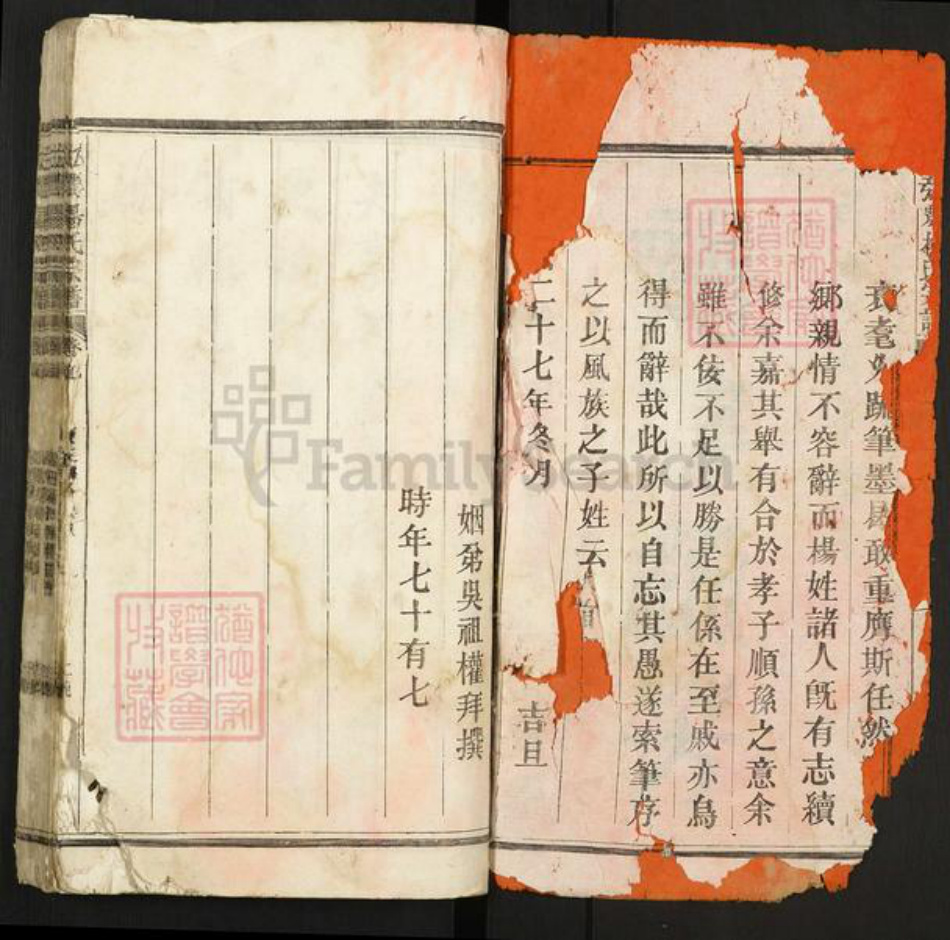 衰耄久疏筆墨曷敢重膺斯任然
鄉親情不容辭而楊姓諸人旣有志續
修余嘉其舉有合於孝子順孫之意余
雖不佞不足以勝是任係在至戚亦烏
得而辭哉此所以自忘其愚遂索筆序
之以風族之子姓云
二十七年冬月
吉旦
姻弟吳祖權拜撰
時年七十有七
楊氏宗譜
FamilySearch